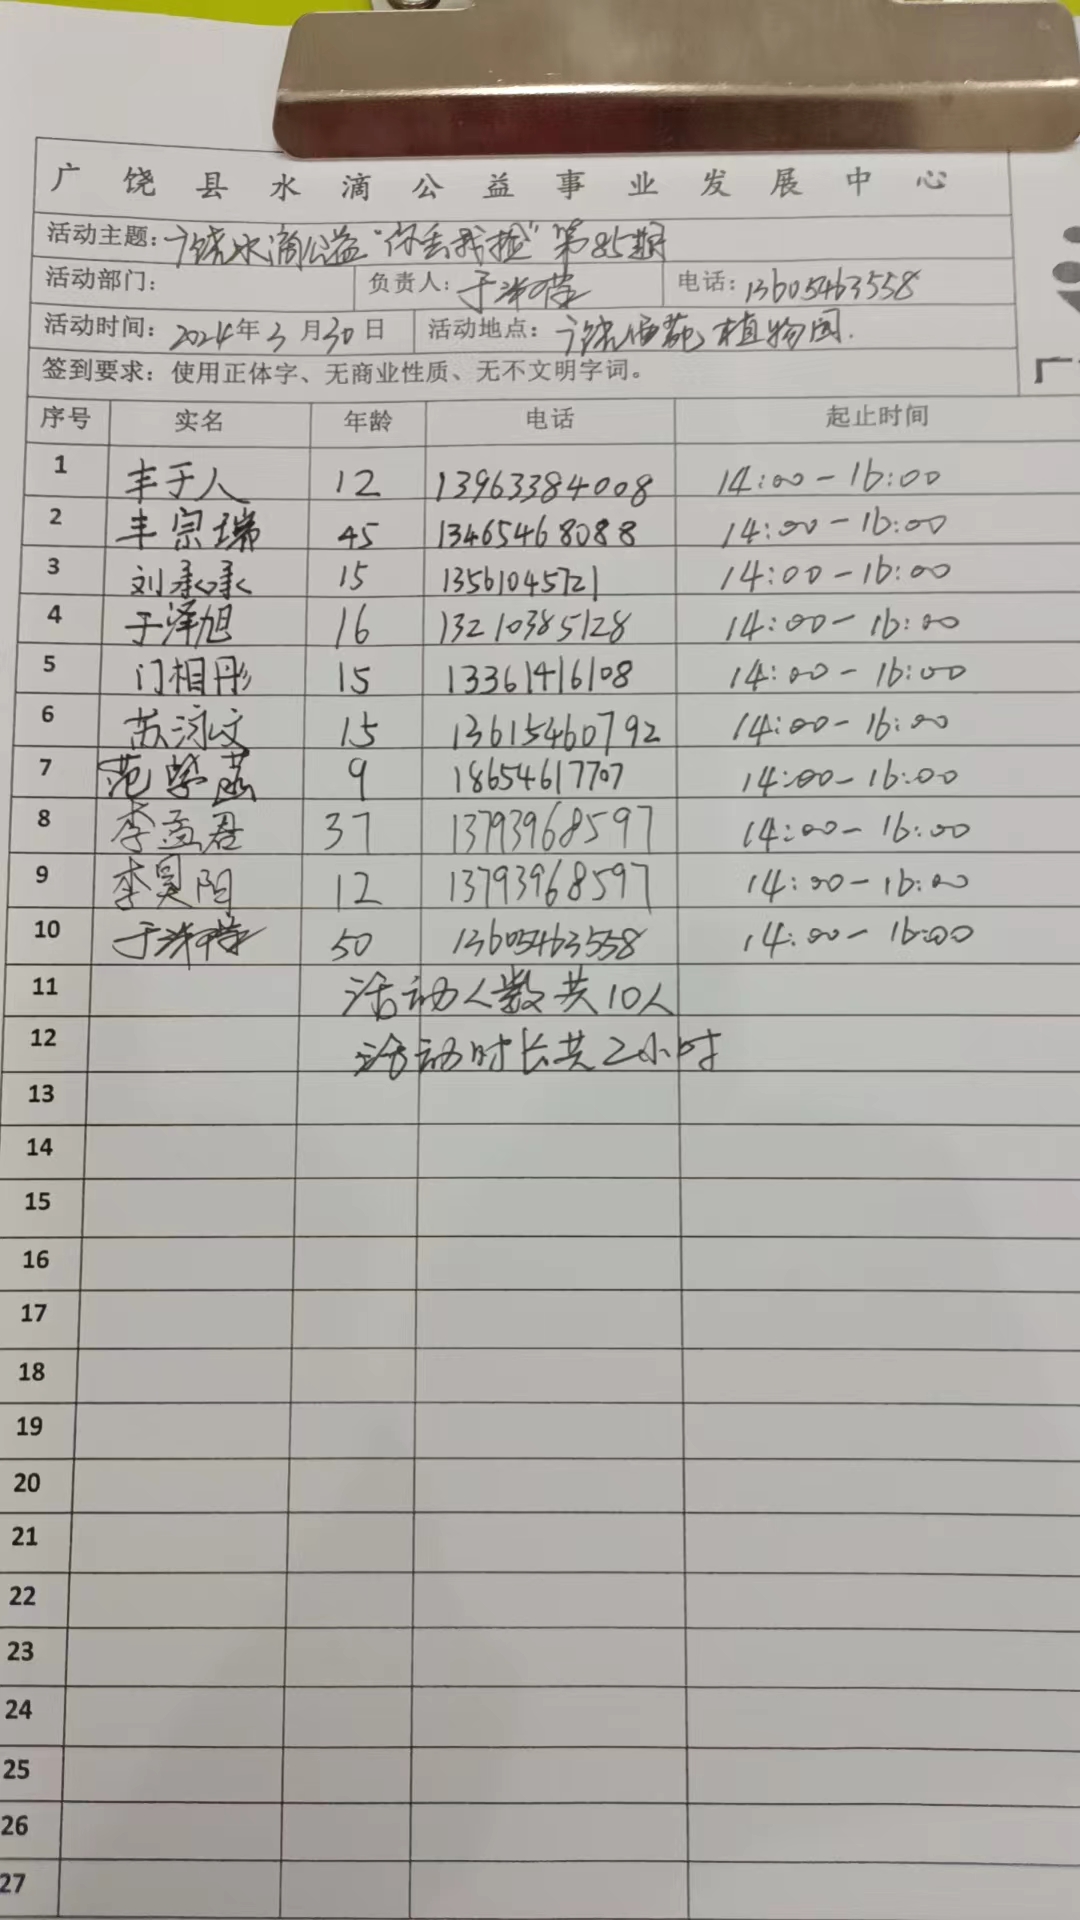 广饶县水滴公益事业发展中心
活动主题: 广饶水滴公益“你丢我捡”第85期
活动部门: 负责人: 于 电话: 13605463558
活动时间: 2024年3月30日 活动地点: 广饶西苑植物园.
签到要求: 使用正体字、无商业性质、无不文明字词。
序号 实名 年龄 电话 起止时间
1 丰于人 12 13963384008 14:00-16:00
2 丰宗瑞 45 13465468088 14:00-16:00
3 刘承承 15 13561045721 14:00-16:00
4 于泽旭 16 13210385128 14:00-16:00
5 门相彤 15 13361416108 14:00-16:00
6 苏泳文 15 13615460792 14:00-16:00
7 范学菡 9 18654617707 14:00-16:00
8 李孟君 37 13793968597 14:00-16:00
9 李昊阳 12 13793968597 14:00-16:00
10 于 50 13605463558 14:00-16:00
11 活动人数共10人
12 活动时长共2小时
13
14
15
16
17
18
19
20
21
22
23
24
25
26
27